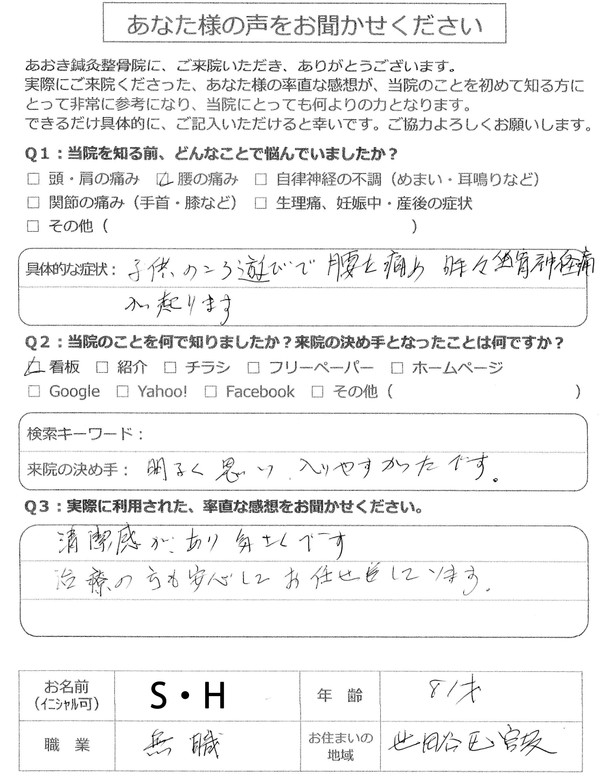 あなた様の声をお聞かせください
あおき鍼灸整骨院に、ご来院いただき、ありがとうございます。
実際にご来院くださった、あなた様の率直な感想が、当院のことを初めて知る方に
とって非常に参考になり、当院にとっても何よりの力となります。
できるだけ具体的に、ご記入いただけると幸いです。ご協力よろしくお願いします。
Q1：当院を知る前、どんなことで悩んでいましたか？
□ 頭・肩の痛み □ 腰の痛み □ 自律神経の不調（めまい・耳鳴りなど）
□ 関節の痛み（手首・膝など） □ 生理痛、妊娠中・産後の症状
□ その他（ ）
具体的な症状：子供のころ遊びで腰を痛め 時々坐骨神経痛
が起ります
Q2：当院のことを何で知りましたか？来院の決め手となったことは何ですか？
□ 看板 □ 紹介 □ チラシ □ フリーペーパー □ ホームページ
□ Google □ Yahoo! □ Facebook □ その他（ ）
検索キーワード：
来院の決め手：明るく思い、入りやすかったです。
Q3：実際に利用された、率直な感想をお聞かせください。
清潔感があり です
治療の方も安心してお任せしています。
お名前 S・H 年 齢 81才
（ｲﾆｼｬﾙ可）
職 業 無職 お住まいの 世田谷区宮坂
地域